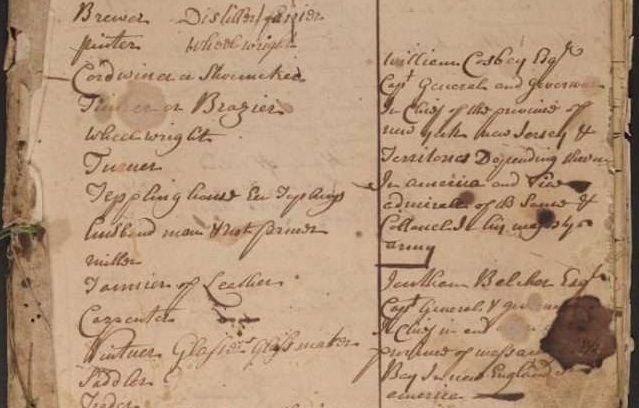 Brewer Distiller/
pinter Wheelwright
Cordwinder or Shoemaker
Tinker or Brazier
Wheelwright
Turner
Teppling house
husband man & not farmer
miller
Tannier of Leather
Carpenter
Vintuer Glasier Glassmaker
Saddler
William Cosbey Esqr
Capt General and Governor
In Chief of the province of
new york new Jersey &
Territores Depending thereon
In america and Vice
admirall of the Same &
Collonel In his majestys
army
Jonathan Belcher Esqr
Capt General &
In Chief in and
province of
Bay In new England
america